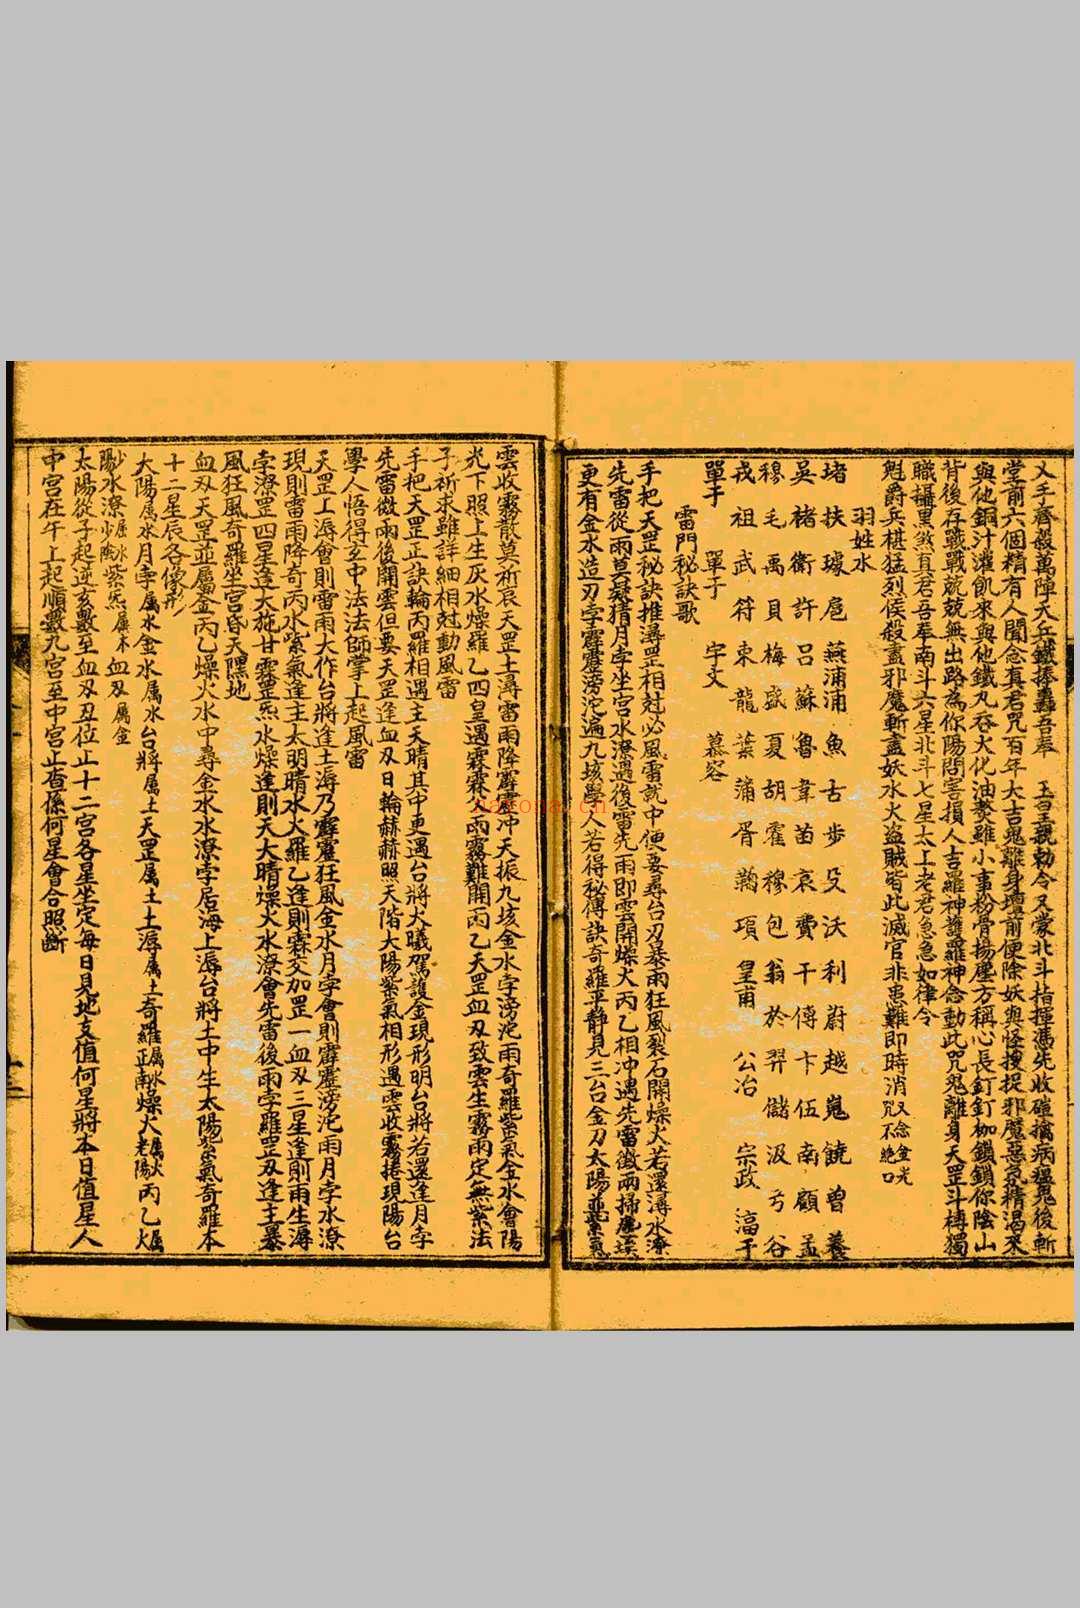 又手齊殺萬陣天兵鐵捧轟吾奉 玉皇親勅令又蒙北斗指揮馮先收磓擒病瘟鬼後斬
堂前六個精有人聞念真君咒百年大吉鬼離身壇前便除妖與怪搜捉邪魔惡氣精渴來
與他銅汁灌飢來與他鐵丸吞大化油熬雖小事粉骨揚塵方稱心長釘釘枷鎖鎖你陰山
背後存戰戰兢兢無出路為你陽間害損人吉羅神護羅神念動此咒鬼離身天罡斗樽獨
職攝黑煞真君吾奉南斗六星北斗七星太上老君急急如律令
魁爵兵棋猛烈侯殺盡邪魔斬盡妖水火盜賊皆此滅官非患難即時消 又念金光咒不絕口
羽姓水
堵 扶 璩 扈 燕 浦 浦 魚 古 步 殳 沃 利 蔚 越 嵬 饒 曾 養
吳 褚 衛 許 呂 蘇 魯 韋 苗 哀 費 干 傅 卞 伍 南 顧 孟
穆 毛 禹 貝 梅 盛 夏 胡 霍 穆 包 翁 於 羿 儲 汲 亐 谷
戎 祖 武 符 束 龍 葉 蒲 胥 鶺 項 皇甫 公冶 宗政 滈于
單于 單于 宇文 慕容
雷門秘訣歌
手把天罡秘訣推潯罡相尅必風雷就中便要尋台刃暴雨狂風裂石開燥火若還潯水潦
先雷從雨莫疑猜月孛坐宮水潦遇後雷先雨即雲開燥火丙乙相沖遇先雷微雨掃塵埃
更有金水造刃孛霹靂滂沱遍九垓學人若得秘傳訣奇羅平靜見三台金刀太陽並紫氣
雲收霧散莫祈哀天罡土潯雷雨降霹靂冲天振九垓金水孛滂沱雨奇羅紫氣金水會陽
光下照上生灰水燥羅乙四皇遇霖霖久雨霧難開丙乙天罡血刃致雲生霧雨定無紫法
子祈求雖詳細相尅動風雷
手把天罡正訣輪丙羅相遇主天晴其中更遇台將火曦駕護金現形明台將若還逢月孛
先雷微雨後開雲但要天罡逢血刃日輪赫赫照天階大陽紫氣相形遇雲收霧捲現陽台
學人悟得玄中法法師掌上起風雷
天罡上潯會則雷雨大作台將逢土潯乃霹靂狂風金水月孛會則霹靂滂沱雨月孛水潦
現則雷雨降奇丙水紫氣逢主太明晴水火羅乙逢則霖交加罡一血刃三星逢則雨生潯
孛潦罡四星逢大施甘霖罡炁水燥逢則天大晴燥火水潦會先雷後雨孛羅罡刃逢主暴
風狂風奇羅坐宮昏天黑地
血刃天罡並屬金丙乙燥火水中尋金水水潦孛居海上潯台將土中生太陽紫氣奇羅木
十二星辰各像形
大陽属水月孛属水金水属水台將属土天罡属土土潯属土奇羅属水正南燥火属火老陽丙乙属火
少陽水潦属水少陰紫炁屬木血刃属金
太陽從子起逆亥數至血刃丑位止十二宮各星坐定每日見地支值何星將本日值星人
中宮在午上起順數九宮至中宮止查係何星會合照斷